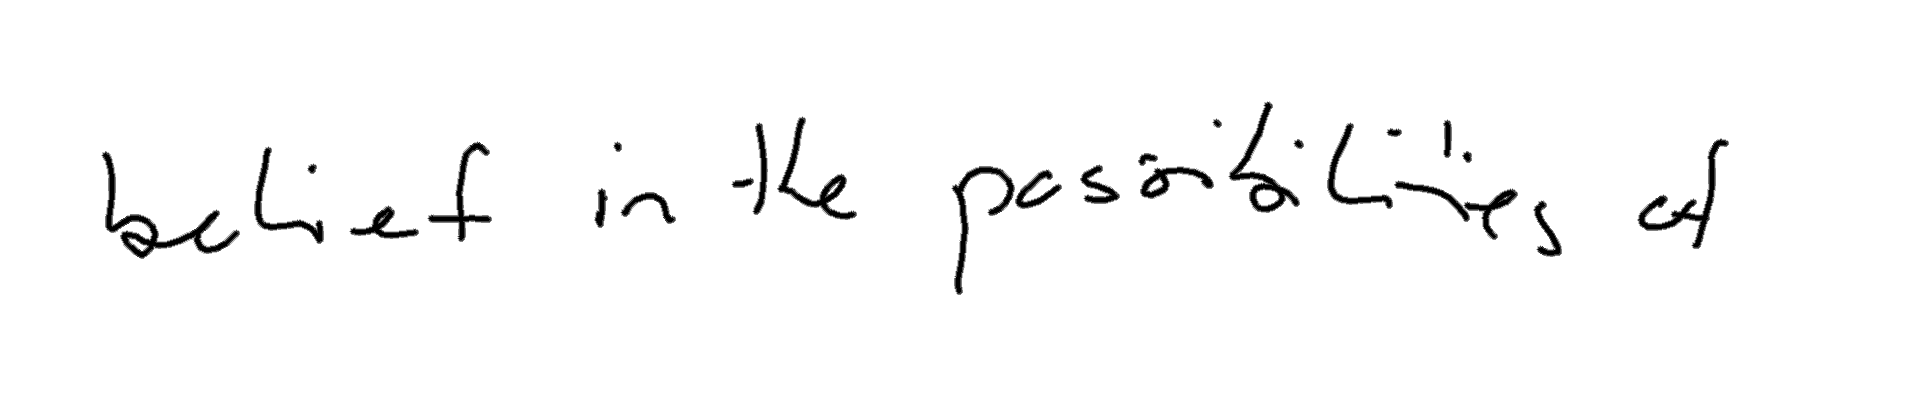 belief in the possibilities of